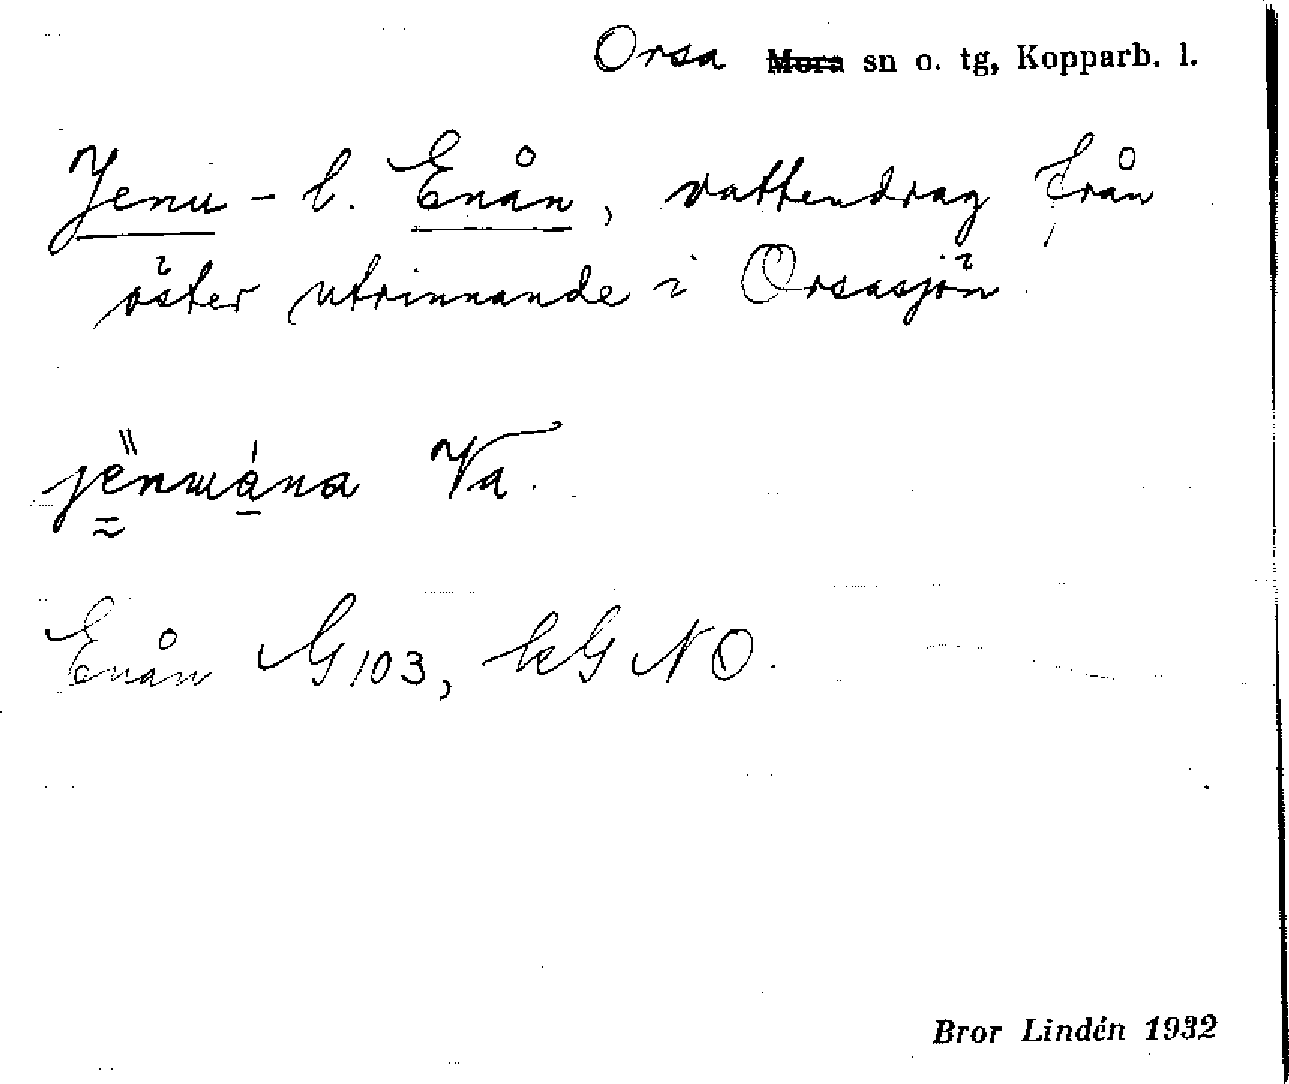 Orsa Mora sn o. tg, Kopparb. l.
Jenu - l. Enån, vattendrag från
öster utrinnande i Orsasjön
Va.
Enån G 103, kG NO.
Bror Lindén 1932